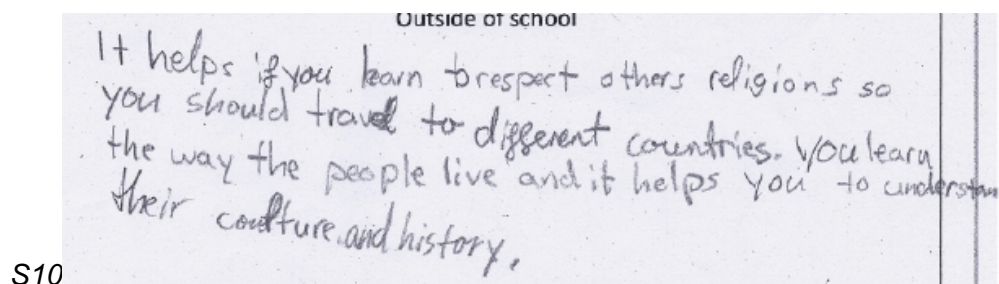 Outside of school
It helps if you learn to respect others religions so
you should travel to different countries. You learn
the way the people live and it helps you to understan
their coulture and history.
S10